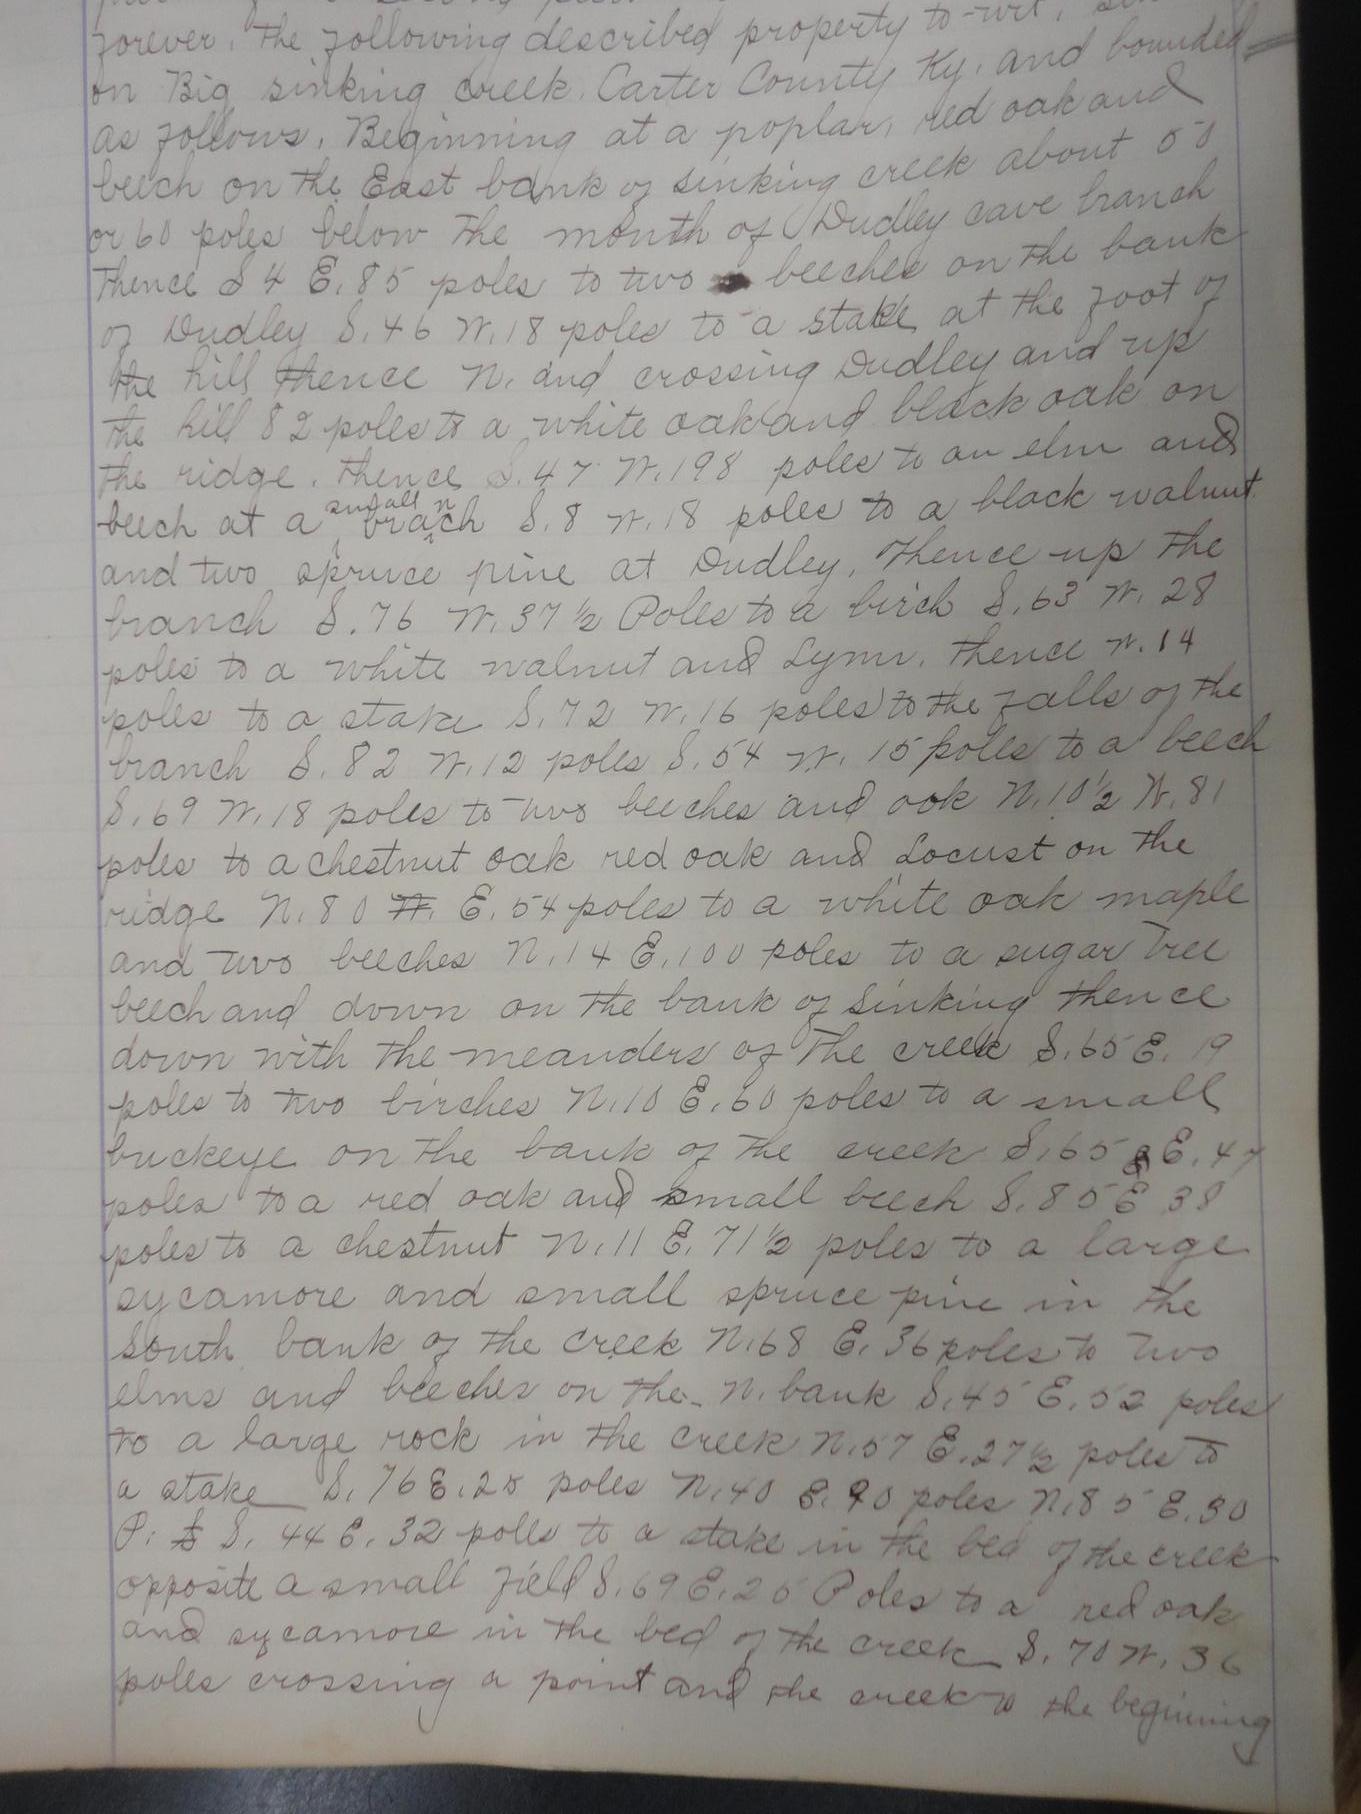 forever, the following described property to-wit,
on Big sinking creek. Carter County Ky, and bounded
as follows. Beginning at a poplar, red oak and
beech on the East bank of sinking creek about 50
or 60 poles below the mouth of Dudley cave branch
thence S 4 E. 85 poles to two beeches on the bank
of Dudley S. 46 W. 18 poles to a stake at the foot of
the hill thence N. and crossing Dudley and up
the hill 82 poles to a white oak and black oak on
the ridge. thence S. 47 W. 198 poles to an elm and
beech at a small branch S. 8 W. 18 poles to a black walnut
and two spruce pine at Dudley, thence up the
branch S. 76 W. 37 1/2 Poles to a birch S. 63 W. 28
poles to a white walnut and Lynn. thence W. 14
poles to a stake S. 72 W. 16 poles to the falls of the
branch S. 82 W. 12 poles S. 54 W. 15 poles to a beech
S. 69 W. 18 poles to two beeches and oak N. 10 1/2 W. 81
poles to a chestnut oak red oak and Locust on the
ridge N. 80 W. E. 54 poles to a white oak maple
and two beeches N. 14 E. 100 poles to a sugar tree
beech and down on the bank of Sinking thence
down with the meanders of the creek S. 65 E. 19
poles to two birches N. 10 E. 60 poles to a small
buckeye on the bank of the creek S. 65 E. 47
poles to a red oak and small beech S. 85 E 38
poles to a chestnut N. 11 E. 71 1/2 poles to a large
sycamore and small spruce pine in the
south bank of the creek N. 68 E. 36 poles to two
elms and beeches on the N. bank S. 45 E. 52 poles
to a large rock in the creek N. 57 E. 27 1/2 poles to
a stake S. 76 E. 25 poles N. 40 E. 90 poles N. 85 E. 30
P. to S. 44 E. 32 polls to a stake in the bed of the creek
opposite a small field S. 69 E. 25 Poles to a red oak
and sycamore in the bed of the creek S. 70 W. 36
poles crossing a point and the creek to the beginning